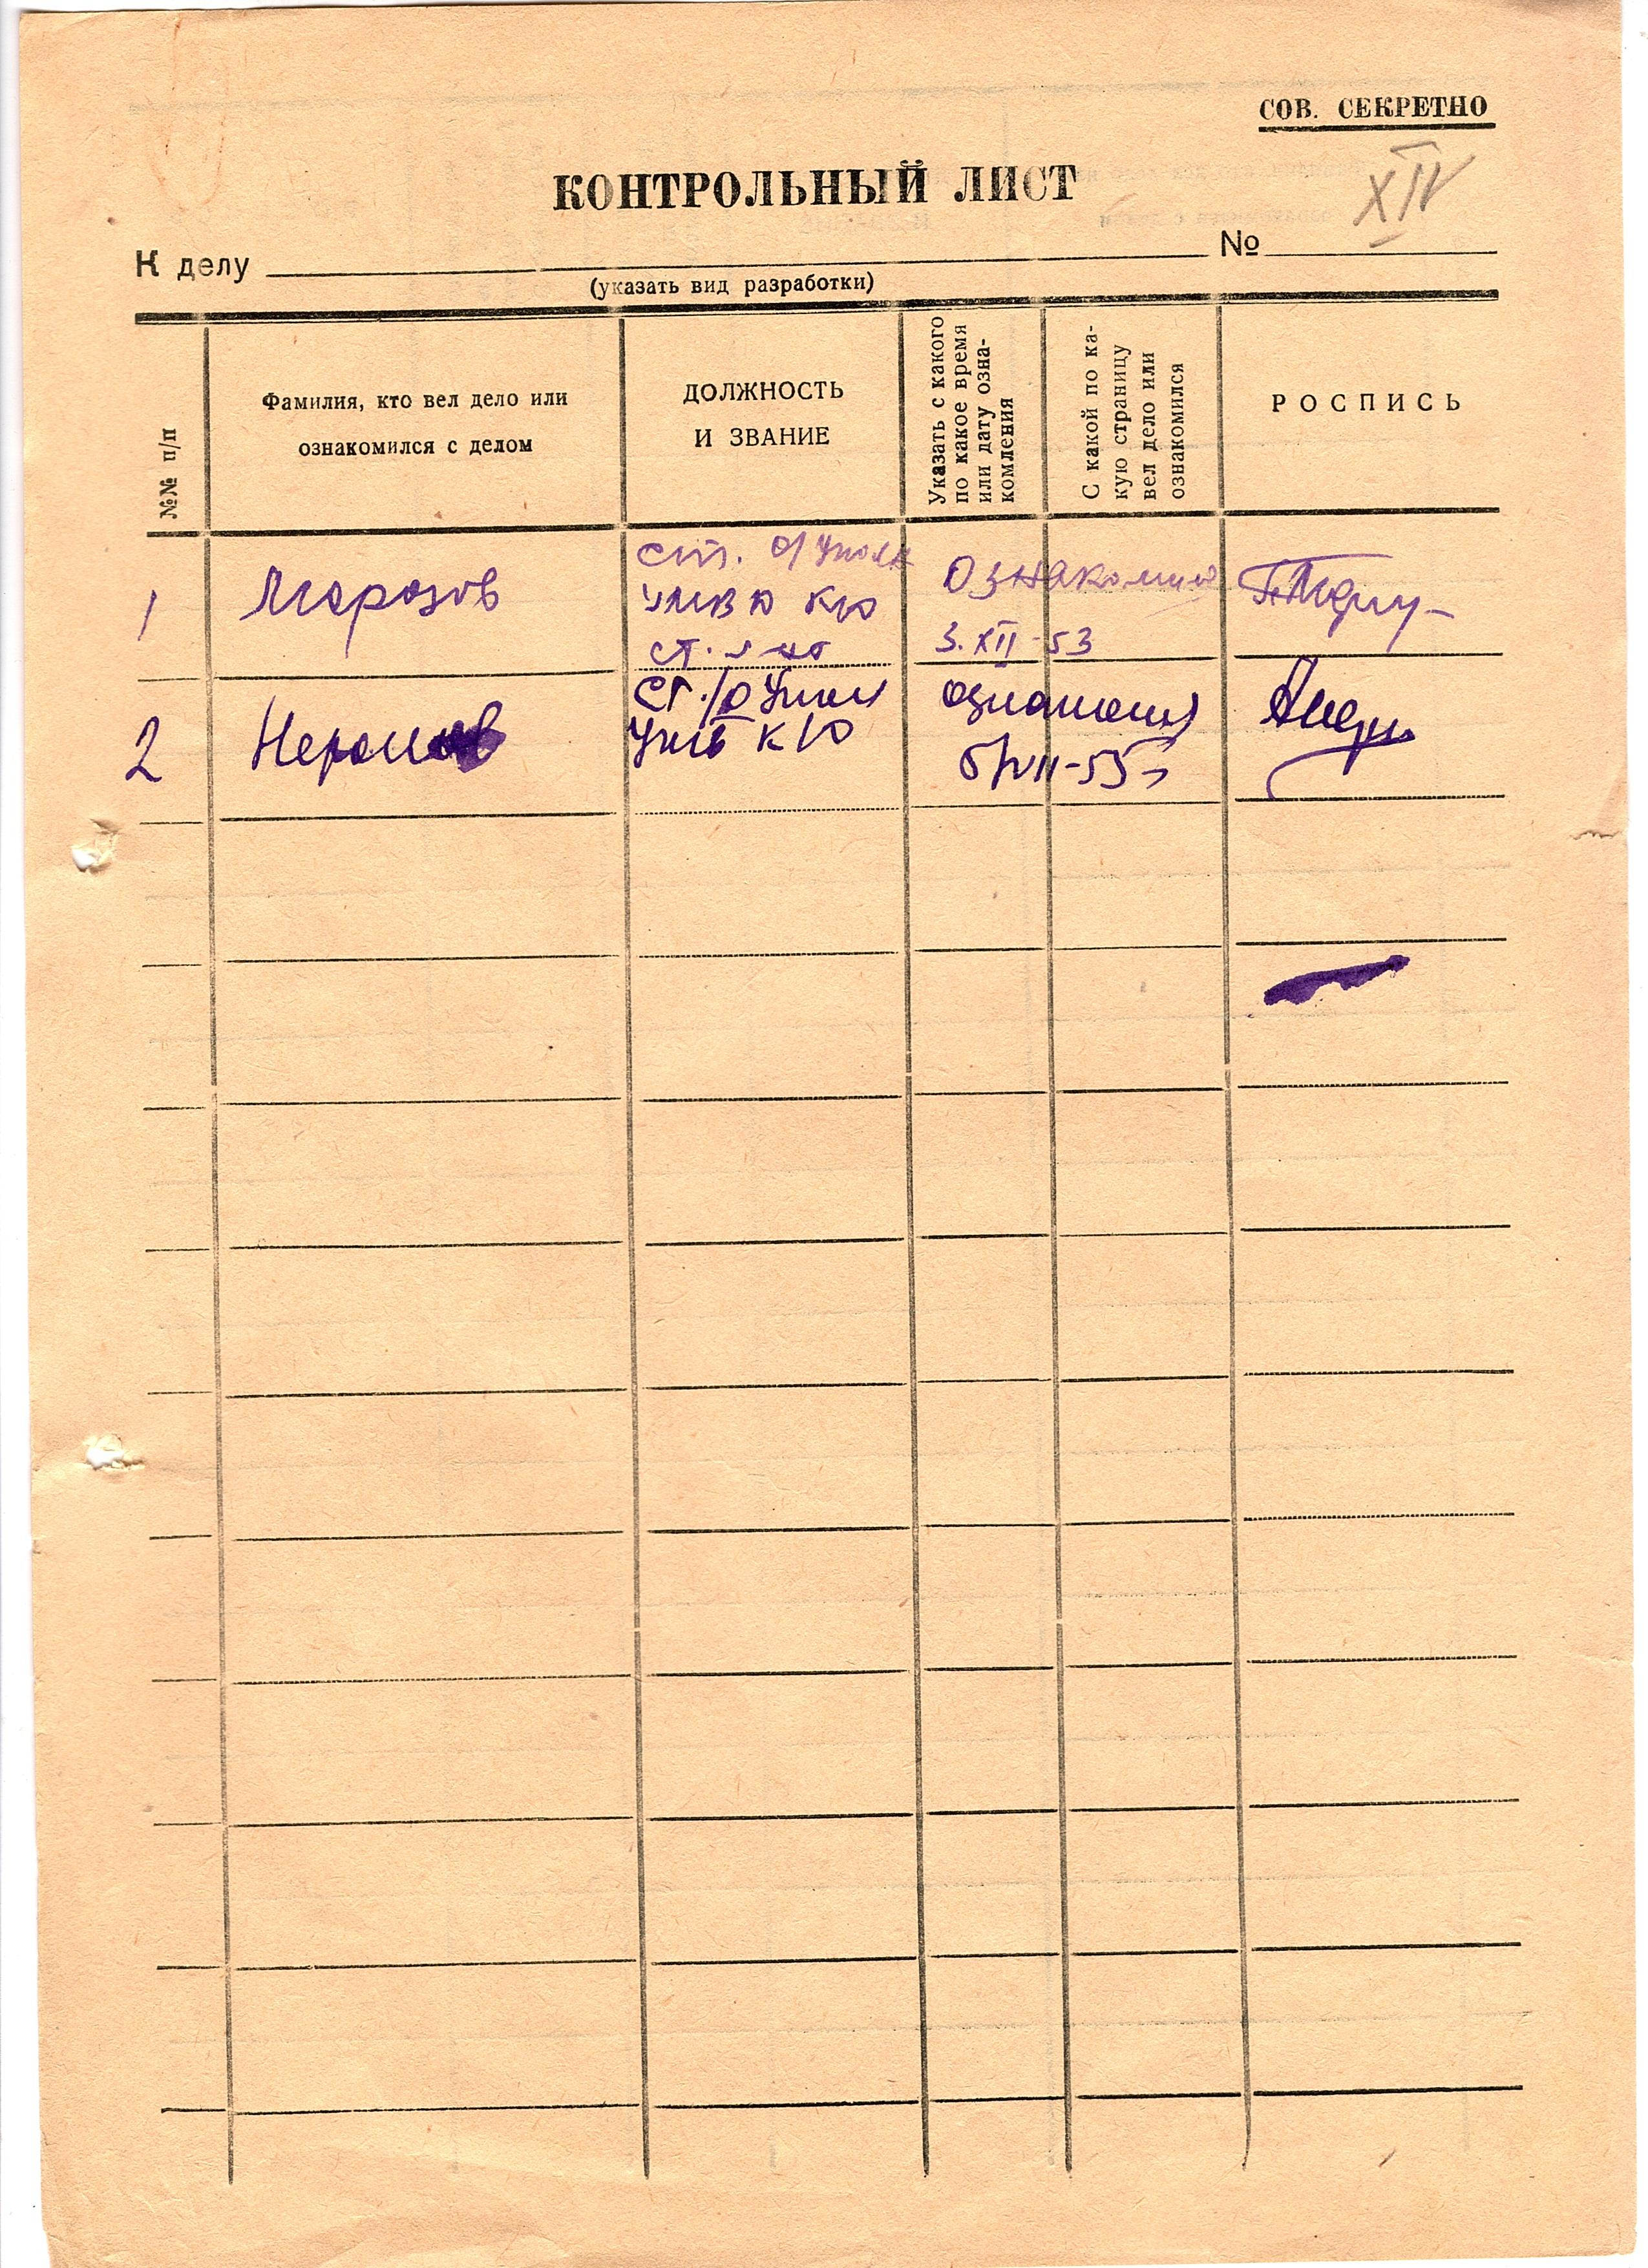 СОВ. СЕКРЕТНО
КОНТРОЛЬНЫЙ ЛИСТ
XIV
К делу № 
(указать вид разработки)
№№ п/п
Фамилия, кто вел дело или
ознакомился с делом
ДОЛЖНОСТЬ
И ЗВАНИЕ
Указать с какого
по какое время
или дату озна-
комления
С какой по ка-
кую страницу
вел дело или
ознакомился
РОСПИСЬ
1
Морозов
ст. о/уполн
УМВД КЮ
ст. л-нт
Ознакомился
3.XII-53
2
ст. о/уполн
КЮ
ознакомил